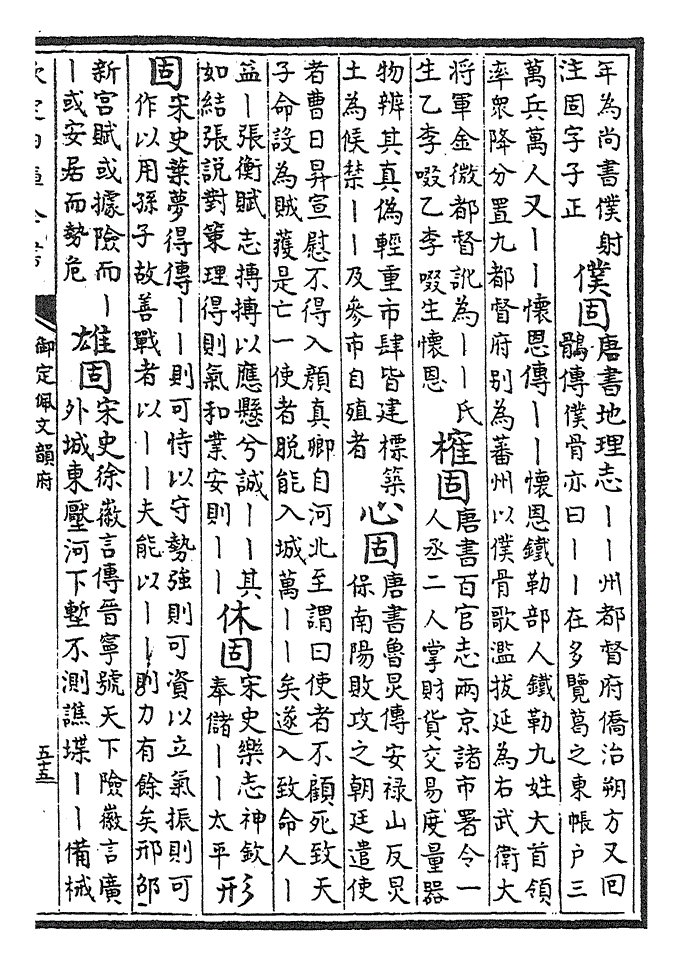 年為尚書僕射
注固字子正
僕固
唐書地理志丨丨州都督府僑治朔方又回
鶻傳僕骨亦曰丨丨在多覽葛之東帳户三
萬兵萬人又丨丨懷恩傳丨丨懷恩鐵勒部人鐵勒九姓大首領
率衆降分置九都督府别為蕃州以僕骨歌濫拔延為右武衛大
將軍金微都督訛為丨丨氏
生乙李啜乙李啜生懷恩
榷固
唐書百官志兩京諸市署令一
人丞二人掌財貨交易度量器
物辨其真偽輕重市肆皆建標築
土為候禁丨丨及參市自殖者
心固
唐書魯炅傳安禄山反炅
保南陽敗攻之朝廷遣使
者曹日昇宣慰不得入顔真卿自河北至謂曰使者不顧死致天
子命設為賊獲是亡一使者脱能入城萬丨丨矣遂入致命人丨
益丨張衡賦志摶摶以應懸兮誠丨丨其
如結張説對策理得則氣和業安則丨丨
休固
宋史樂志神欽
奉儲丨丨太平
形固
宋史葉夢得傳丨丨則可恃以守勢強則可資以立氣振則可
作以用孫子故善戰者以丨丨夫能以丨丨則力有餘矣邢卲
新宫賦或據險而丨
丨或安居而勢危
雄固
宋史徐徽言傳晉寧號天下險徽言廣
外城東壓河下塹不測譙堞丨丨備械
御定佩文韻府
五十五